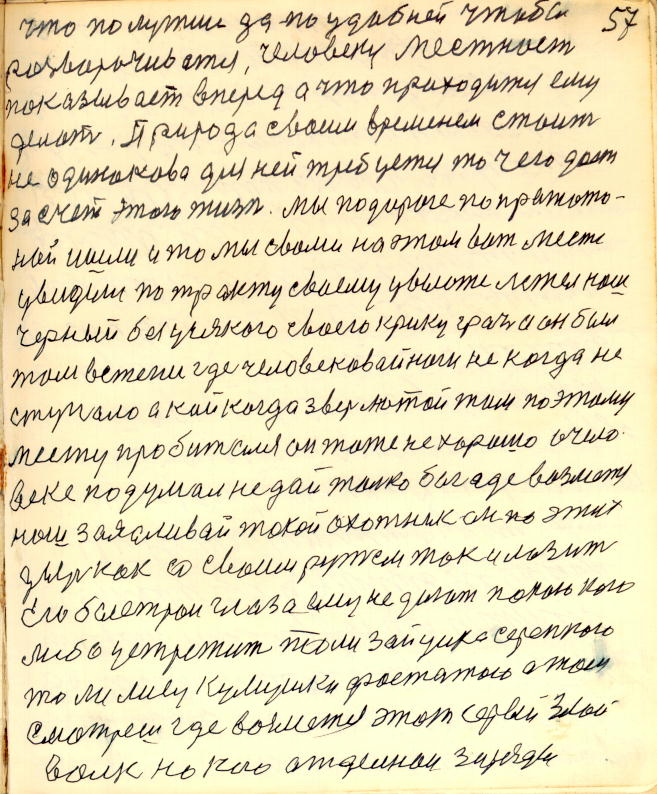 что по лутши да по удобней чтобы 57
розворочиватя, человеку местност
показывает вперед а что приходитя ему
делать. Природа своим временем стоит
не одинокова для ней требуетя то чего дает
за счет этого жизн. Мы по дороге по
ной ишли и то мы сроми на этом вот месте
увидели по тракту своему увысте летел наш
черный без усякого своего крику грач а он был
там встепи где человековай ноги не когда не
ступало а кой когда звер лютой там по этому
месту пробитсмя он тоже не хорошо очело
веке подумал не дай толко бог аде возмется
наш заядливай такой охотник он по этих
как со своим ружем так и лазит
Его быстрои глаза ему не дают покою кого
либо устретит то ли зайчика серенкого
то ли лису кумушку фостатою а там
смотреш где возметя этот серый злой
волк на кого отделнои заряды